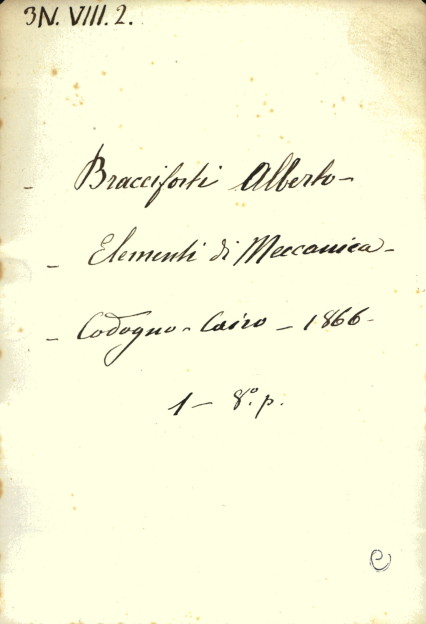 3N. VIII. 2.
- Bracciforti Alberto -
- Elementi di Meccanica -
- Codogno - Cairo - 1866 -
1 - 8.° p.
e